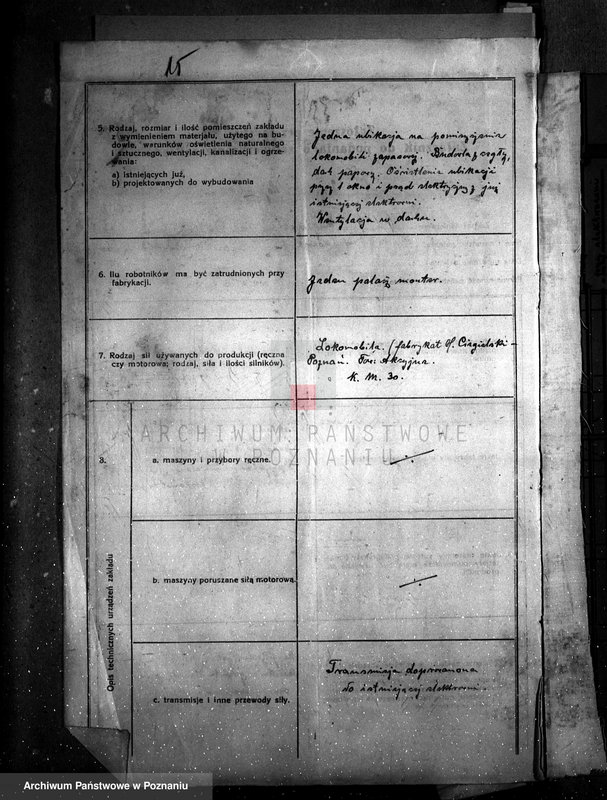 15
5. Rodzaj, rozmiar i ilość pomieszczeń zakładu
z wymienieniem materjału, użytego na bu-
dowle, warunków oświetlenia naturalnego
i sztucznego, wentylacji, kanalizacji i ogrze-
wania:
a) istniejących już,
b) projektowanych do wybudowania
Jedna ubikacja na pomieszczenie
lokomobili zapasowej. z cegły,
dach papowy. Oświetlenie ubikacji
przez 1 okno i prąd elektryczny z już
istniejącej elektrowni.
Wentylacja w dachu.
6. Ilu robotników ma być zatrudnionych przy
fabrykacji.
Jeden palacz monter.
7. Rodzaj sił używanych do produkcji (ręczna
czy motorowa; rodzaj, siła i ilości silników).
Lokomobila. (fabrykat H. Cegielski -
Poznań. Tow: Akcyjne.
K. M. 30.
8.
Opis technicznych urządzeń zakładu
a. maszyny i przybory ręczne.
b. maszyny poruszane siłą motorową
c. transmisje i inne przewody siły.
Transmisja doprowadzona
do istniejącej elektrowni.
ARCHIWUM PAŃSTWOWE
POZNANIU
Archiwum Państwowe w Poznaniu